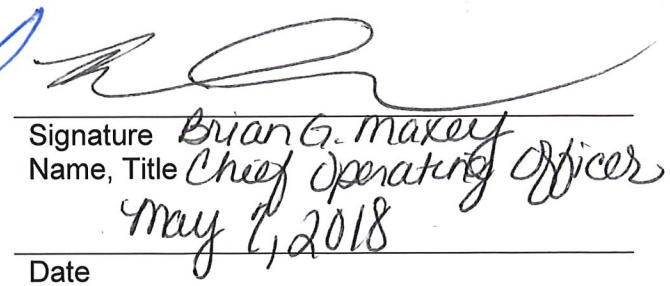 Signature Brian G. Maxey
Name, Title Chief Operating Officer
May 7, 2018
Date